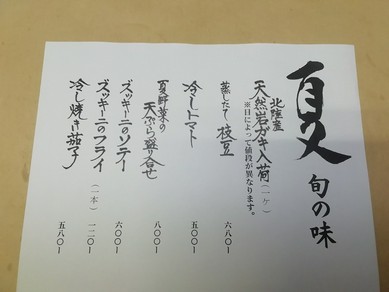 夏 旬の味
北陸産
天然岩ガキ入荷(一ケ)
※日によって値段が異なります。
蒸したて枝豆 六八〇ー
冷しトマト 五〇〇ー
夏野菜の
天ぷら盛り合せ 八〇〇ー
ズッキーニのソテイ 六〇〇ー
ズッキーニのフライ(一本) 一二〇ー
冷し焼き茄子 五八〇ー